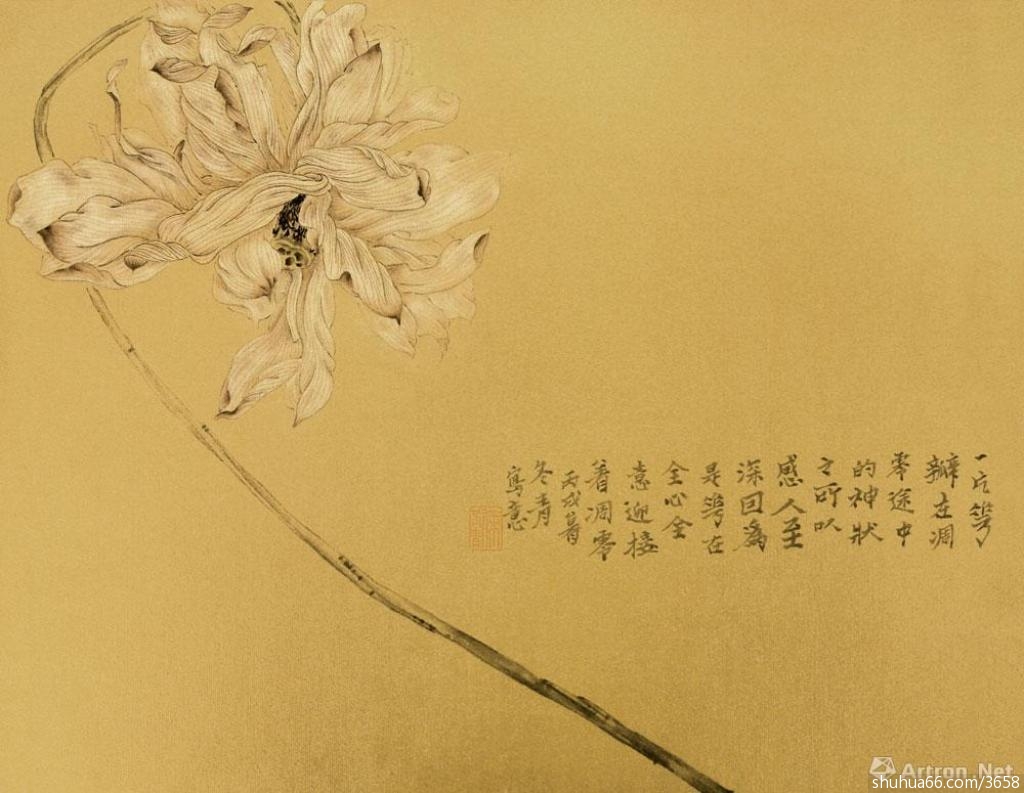 一片花
瓣在凋
零途中
的神狀
之所以
感人至
深回為
是花在
全心全
意迎接
着凋零
丙戌暮
冬青
寫意
Artron.Net
shuhua66.com/3658